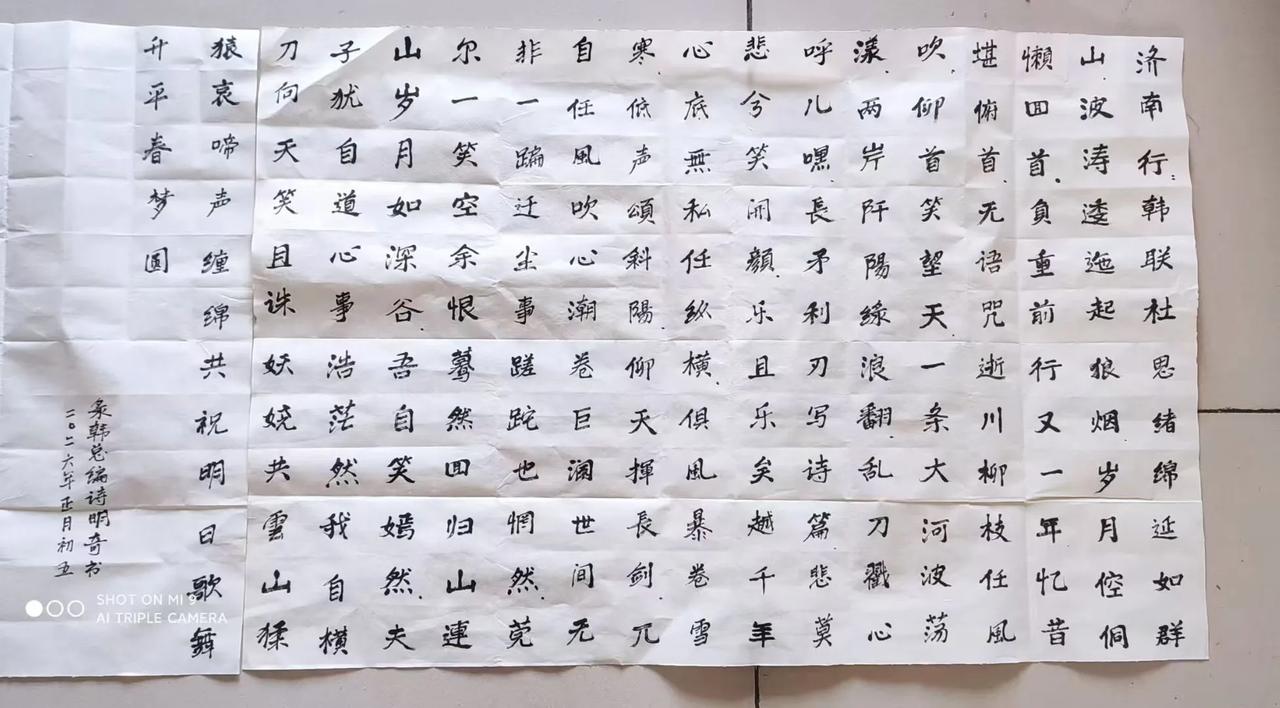 济南行:韩联社思绪绵延如群
山波涛逶迤起狼烟.岁月倥侗
懒回首.负重前行又一年忆昔
堪俯首.无语咒逝川柳枝任風
吹.仰首笑望天一条大河波荡
漾.两岸阡陽緣浪翻乱刀戳心
呼儿嘿長矛利刃写诗篇悲莫
悲兮笑開顔.乐且乐矣越千年
心底無私任纵横.俱風暴卷雪
寒.低声頌斜陽.仰天揮長剑兀
自任風吹心潮卷巨澜世间无
非一蹁迁尘事蹉跎也惘然.莞
尔一笑空余恨.蓦然回归山連
山岁月如深谷.吾自笑嫣然.夫
子犹自道心事浩茫然我自横
刀向天笑且诛妖娆共雲山猱
猿哀啼声缠绵共祝明日歌舞
升平春梦圆
录韩总编诗明奇书
二〇二六年正月初五
SHOT ON MI 9
AI TRIPLE CAMERA